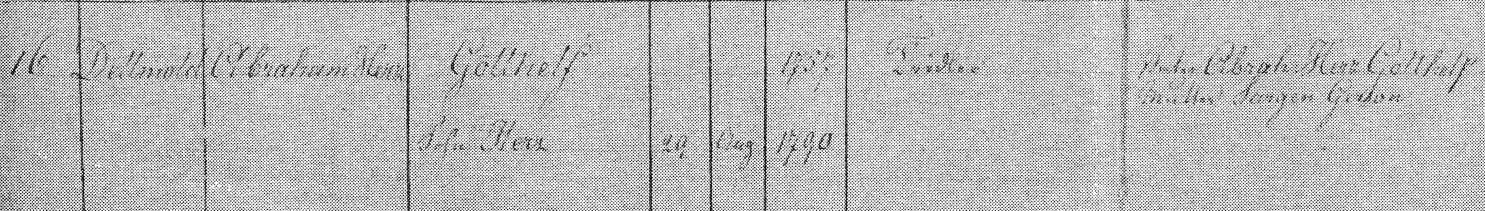 16 Dettmold Abraham Herz Gotthelf 1757 Trödler Vater Abrah. Herz Gotthelf
Mutter Gerson
Sohn Herz 29 Aug 1790